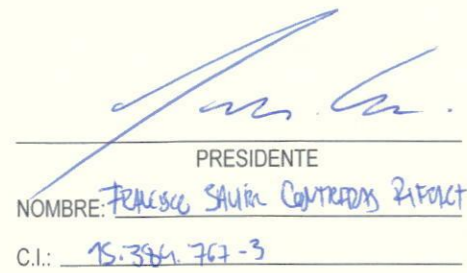 PRESIDENTE
NOMBRE: FRANCISCO CONTRERAS
C.I.: 15.384.767-3